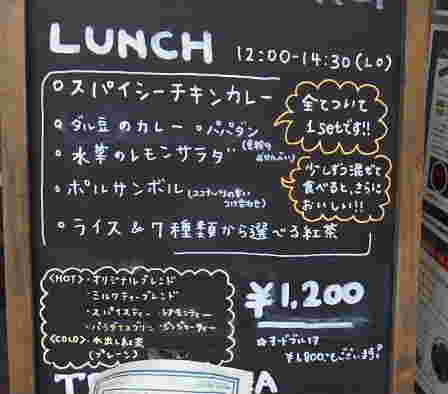 LUNCH 12:00-14:30(LO)
○スパイシーチキンカレー
○ダル豆のカレー ○パパダン
○水菜のレモンサラダ
○ポルサンボル(ココナッツの辛い
○ライス&7種類から選べる紅茶
全てついて
1setです!!
少しずつ混ぜて
食べると、さらに
おいしい!!
<HOT>・オリジナルブレンド
ミルクティーブレンド
・スパイスティー
<COLD>・水出し紅茶
(プレーン)
¥1,200
¥1,800もございます!